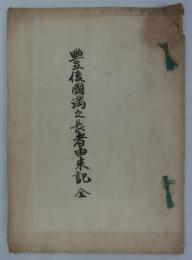 豊後國満之長者由来記 全